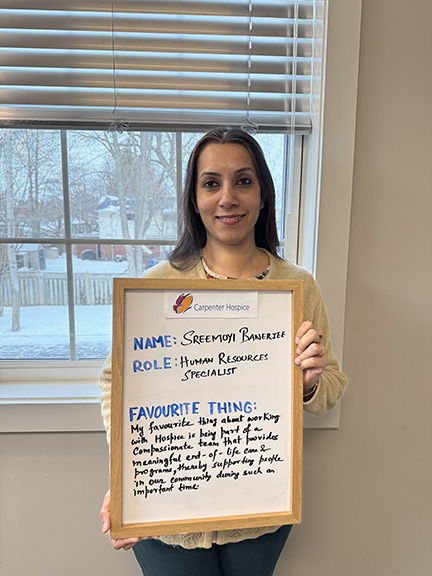 Carpenter Hospice
NAME: SREEMOYI BANERJEE
ROLE: HUMAN RESOURCES
SPECIALIST
FAVOURITE THING:
My favourite thing about working
with Hospice is being part of a
Compassionate team that provides
meaningful end-of-life care &
programs, thereby supporting people
in our community during such an
important time.